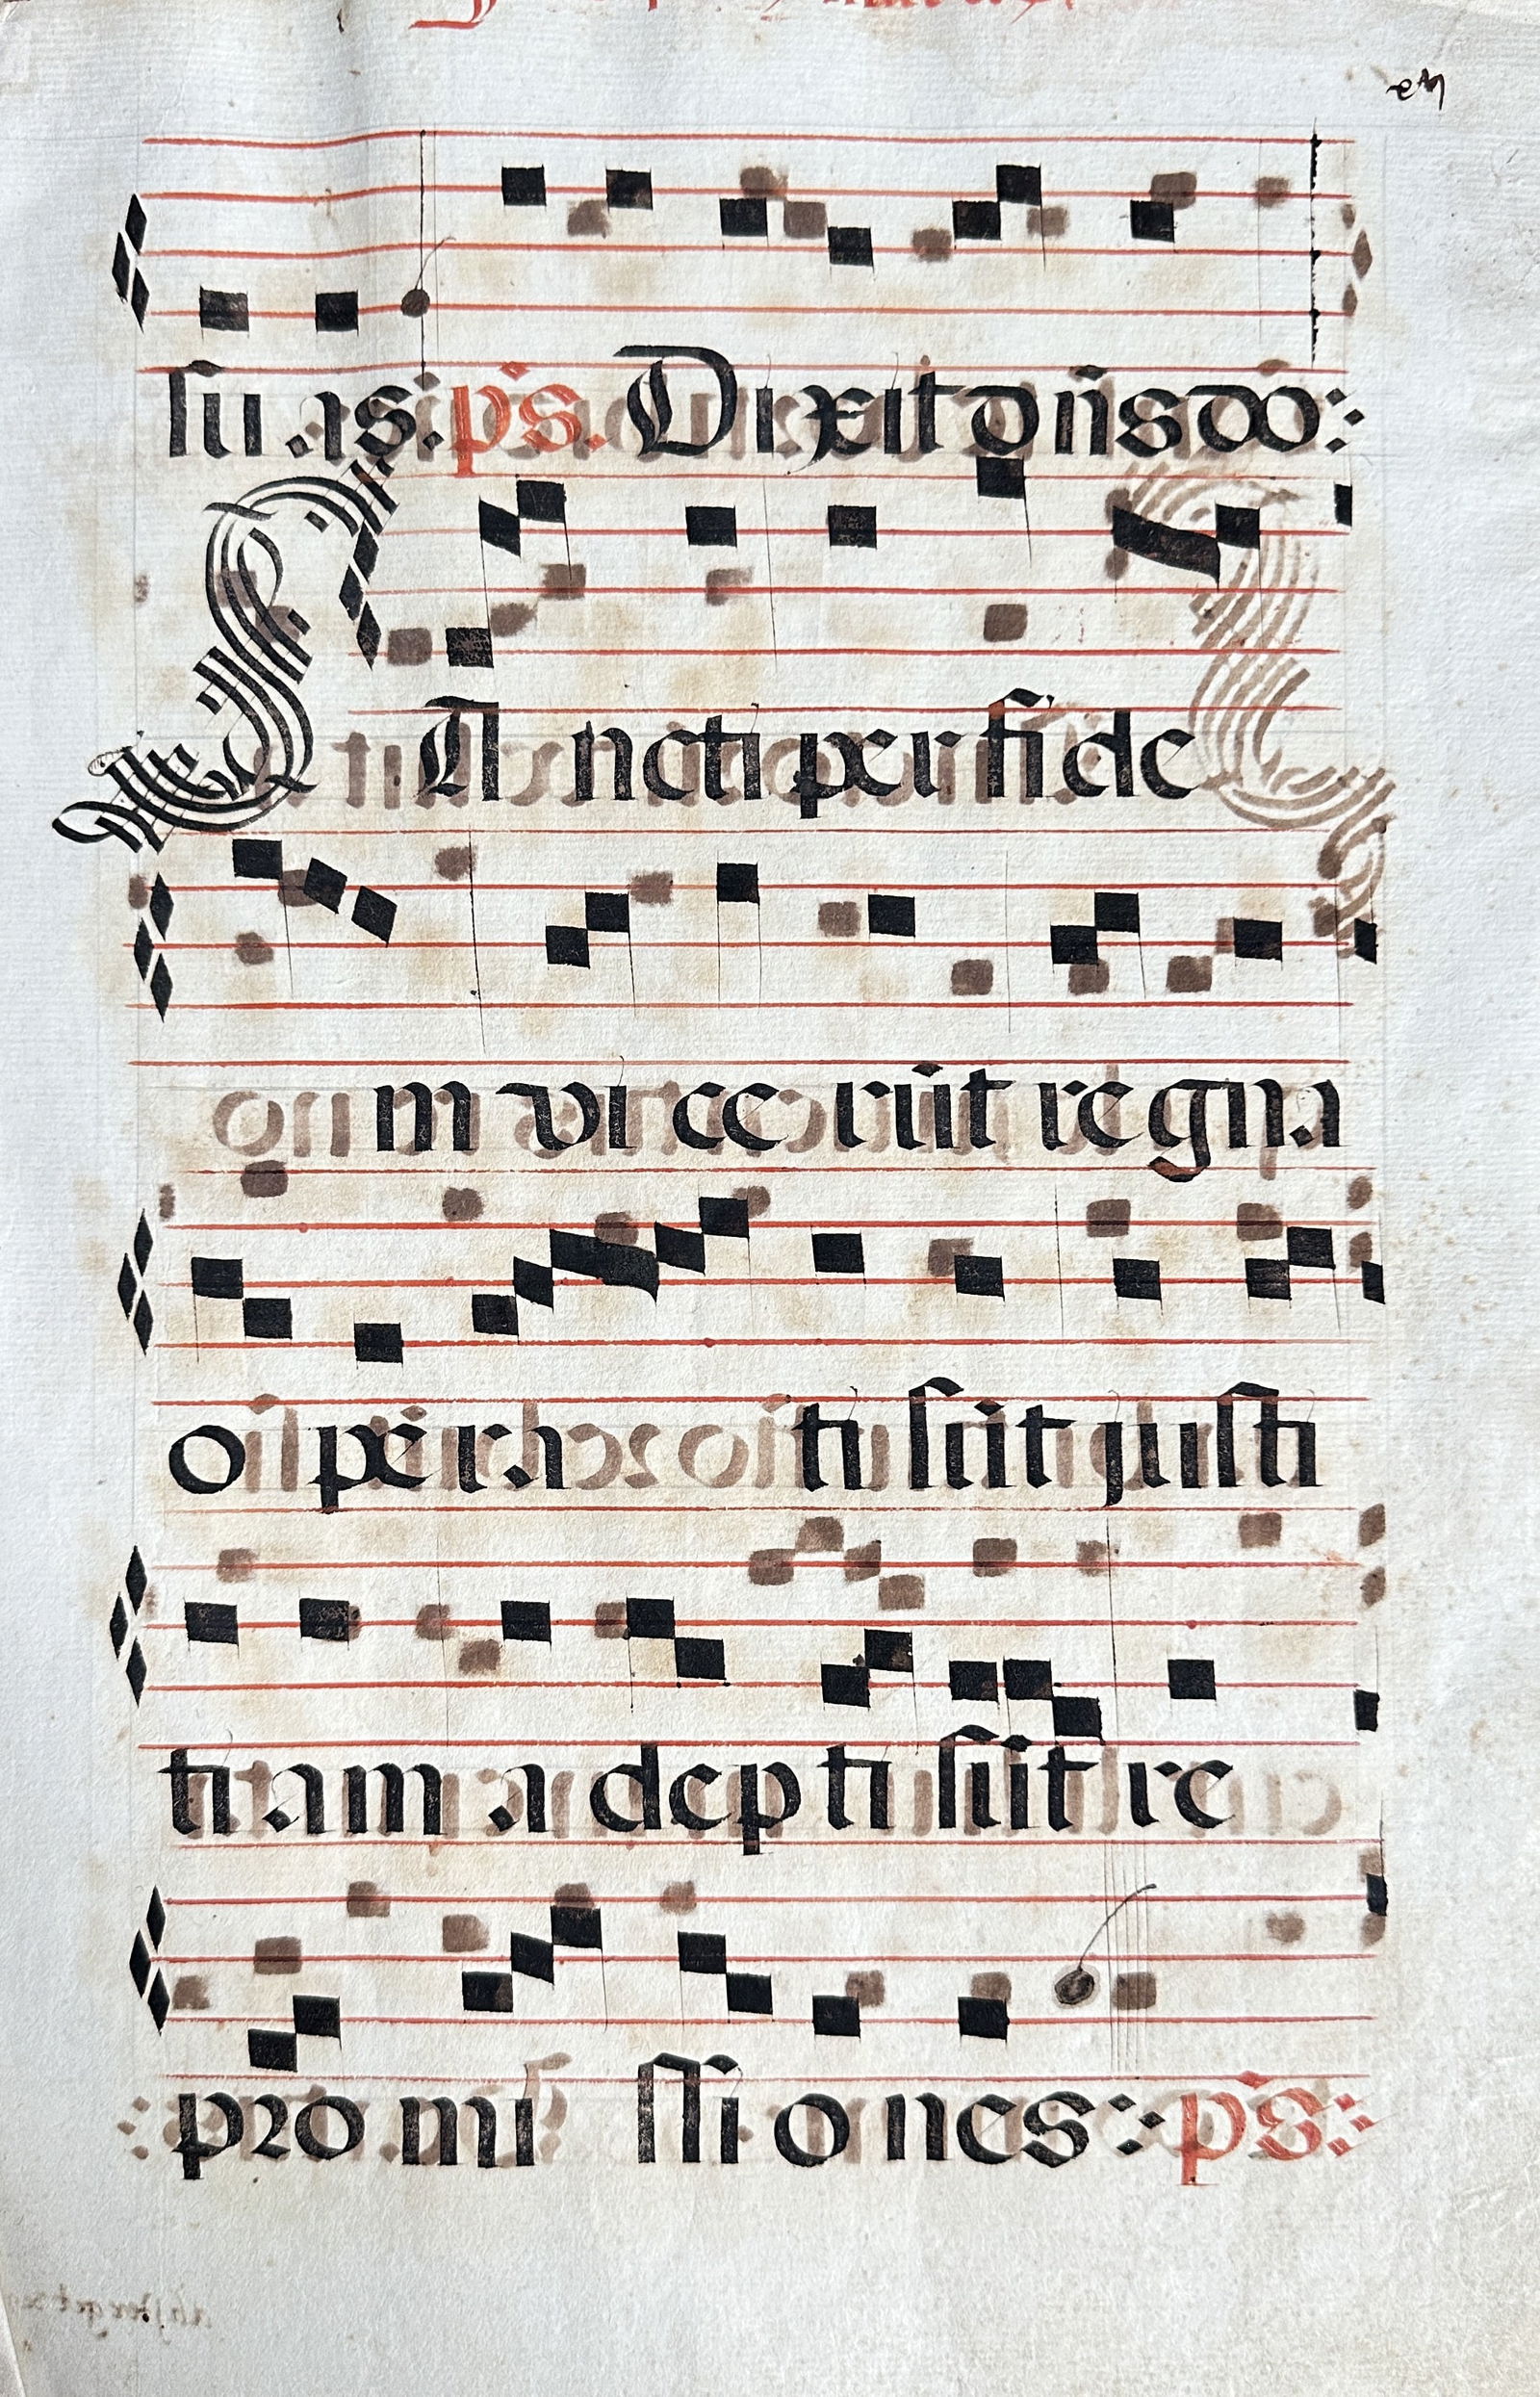 su as. ps. Dixit dñs do:
SA ncti per fi de
m vi ce rũt regna
o pe ra ti sũt justi
tiam a dep ti sũt re
pro mi ssi o nes: ps: